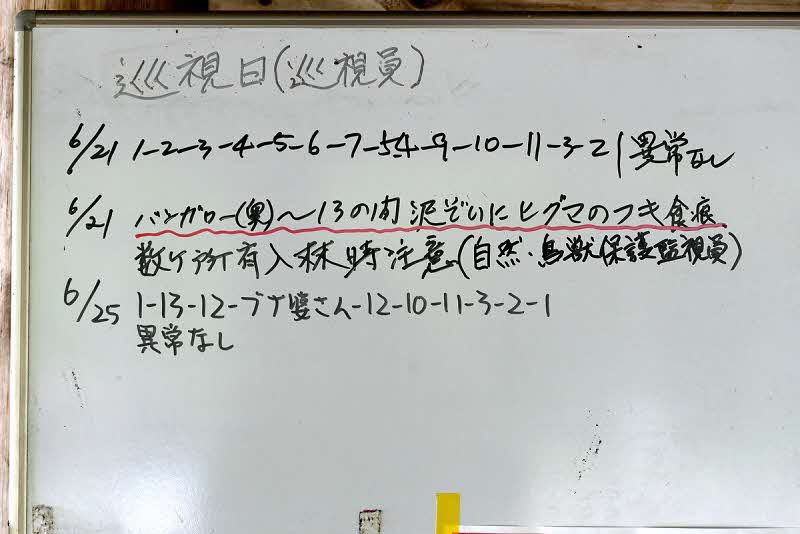 巡視日(巡視員)
6/21 1-2-3-4-5-6-7-54-9-10-11-3-2 異常なし
6/21 バンガロー(奥)～13の間 沢ぞいにヒグマのフキ食痕
数ヶ所有 入林時注意(自然・鳥獣保護監視員)
6/25 1-13-12-ブナ婆さん-12-10-11-3-2-1
異常なし